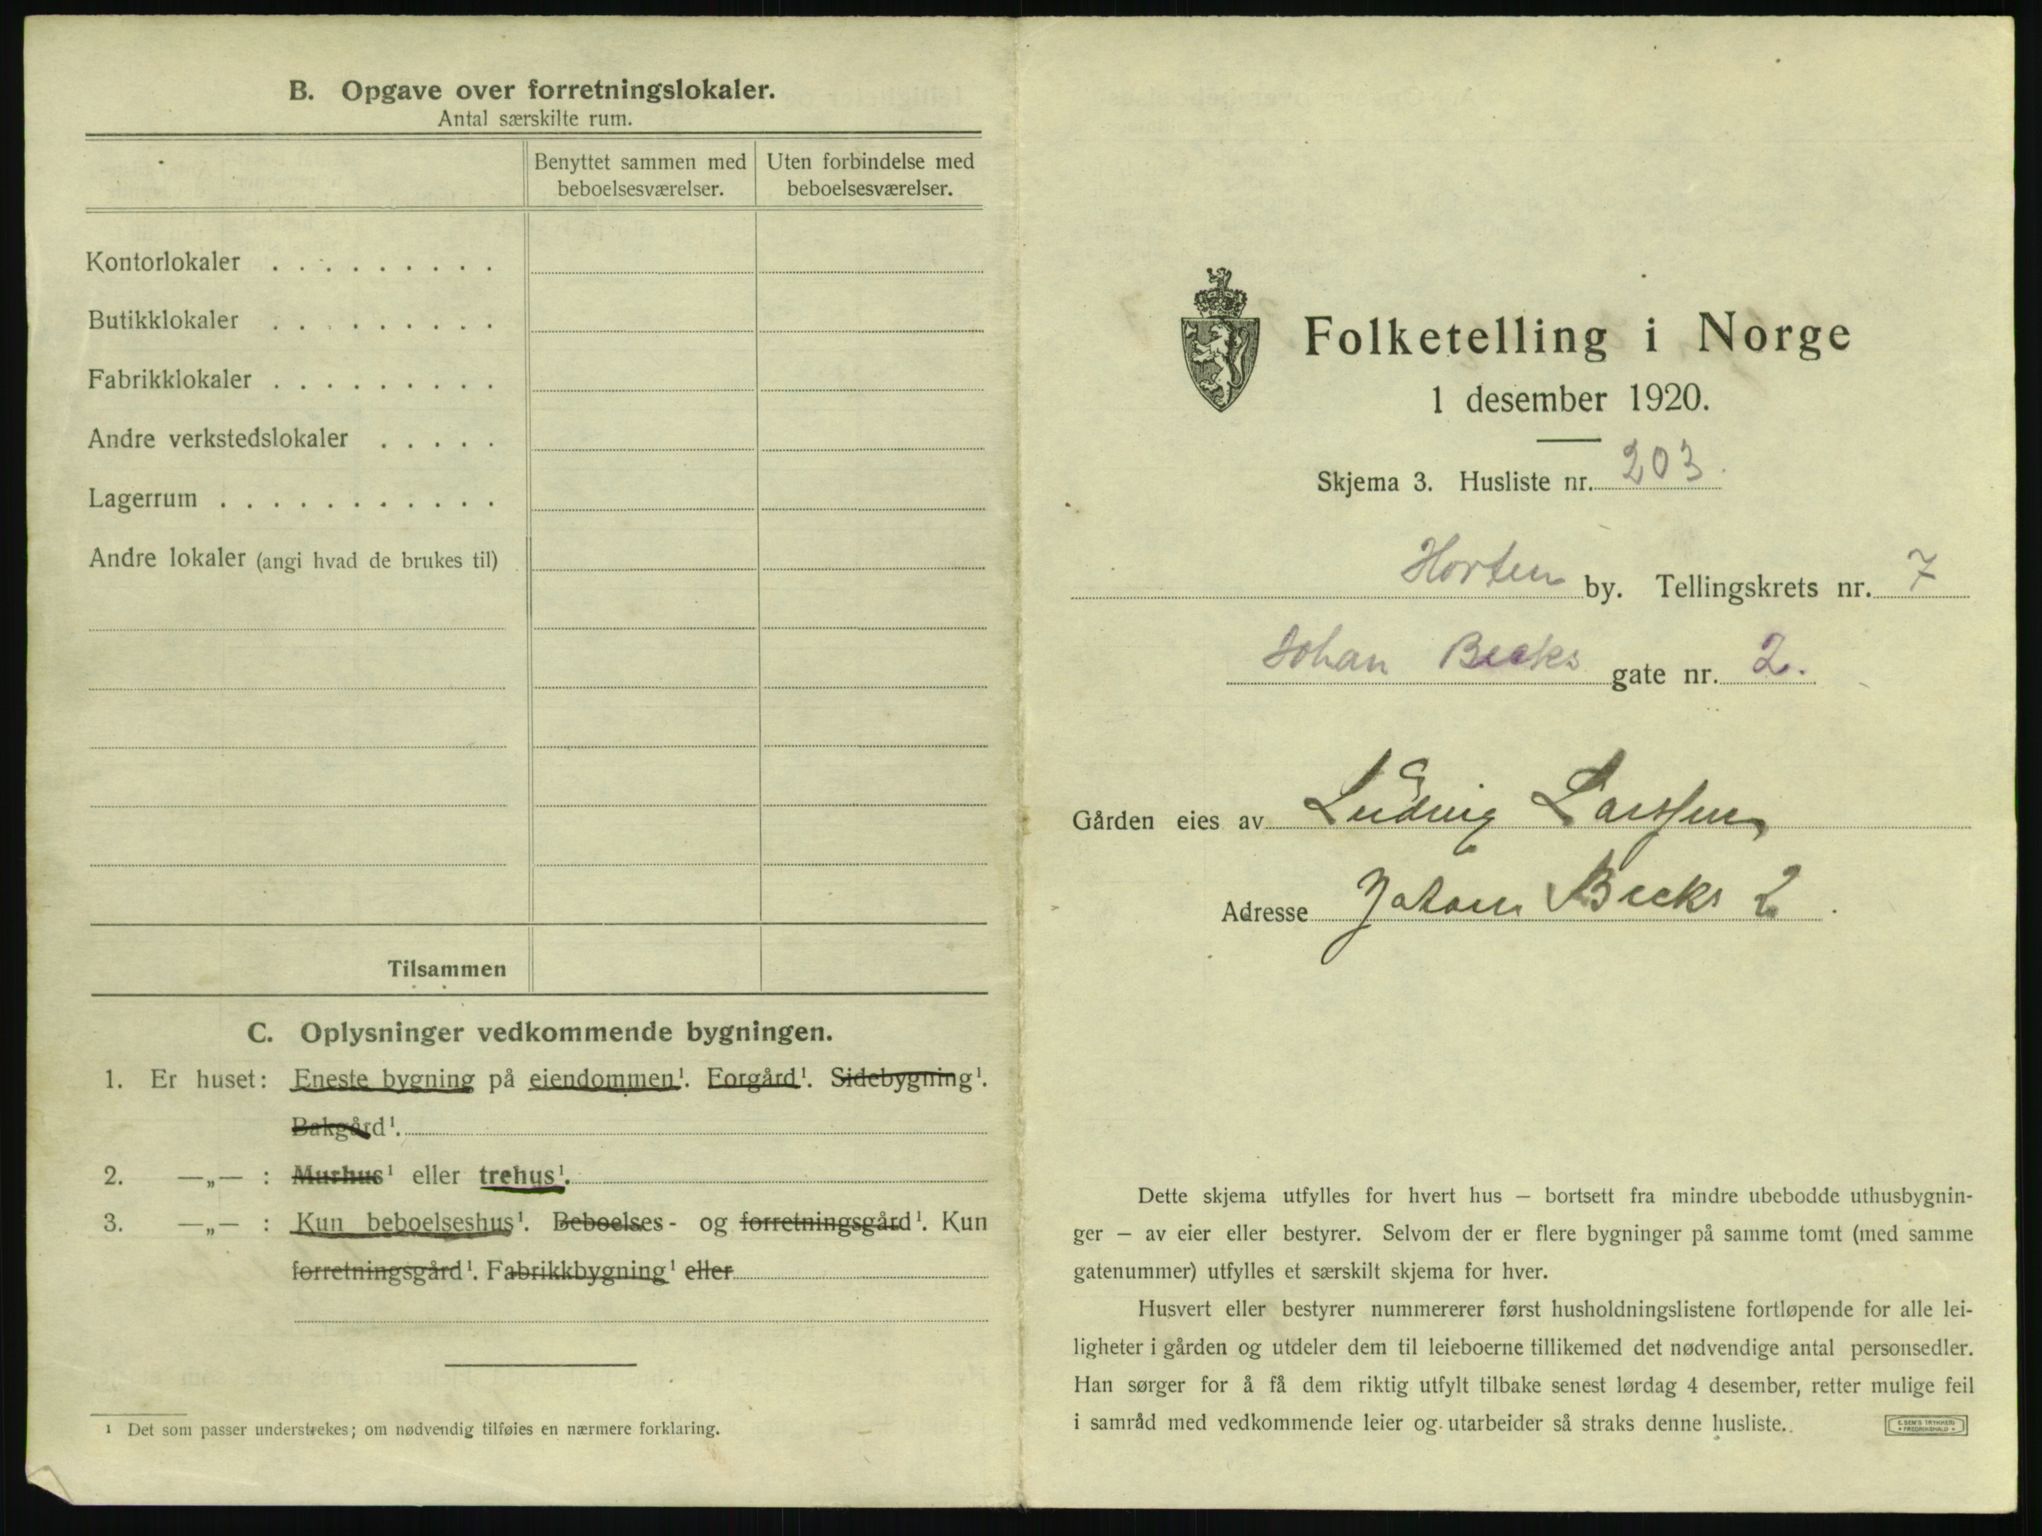 B. Opgave over forretningslokaler.
Antal særskilte rum.
Benyttet sammen med beboelsesværelser.
Uten forbindelse med beboelsesværelser.
Kontorlokaler . . . . . . . . .
Butikklokaler . . . . . . . . .
Fabrikklokaler . . . . . . . . .
Andre verkstedslokaler . . . . .
Lagerrum . . . . . . . . . . . .
Andre lokaler (angi hvad de brukes til)
Tilsammen
C. Oplysninger vedkommende bygningen.
1. Er huset: Eneste bygning på eiendommen¹. Forgård¹. Sidebygning¹.
Bakgård¹.
2. —„— : Murhus¹ eller trehus¹.
3. —„— : Kun beboelseshus¹. Beboelses- og forretningsgård¹. Kun
forretningsgård¹. Fabrikkbygning¹ eller
¹ Det som passer understrekes; om nødvendig tilføies en nærmere forklaring.
Folketelling i Norge
1 desember 1920.
Skjema 3. Husliste nr. 203.
Horten by. Tellingskrets nr. 7
Johan Becks gate nr. 2.
Gården eies av Ludvig Larssen
Adresse Johan Becks 2.
Dette skjema utfylles for hvert hus – bortsett fra mindre ubebodde uthusbygnin-
ger – av eier eller bestyrer. Selvom der er flere bygninger på samme tomt (med samme
gatenummer) utfylles et særskilt skjema for hver.
Husvert eller bestyrer nummererer først husholdningslistene fortløpende for alle lei-
ligheter i gården og utdeler dem til leieboerne tillikemed det nødvendige antal personsedler.
Han sørger for å få dem riktig utfylt tilbake senest lørdag 4 desember, retter mulige feil
i samråd med vedkommende leier og utarbeider så straks denne husliste.
E. SEM'S TRYKKERI
FREDRIKSHALD